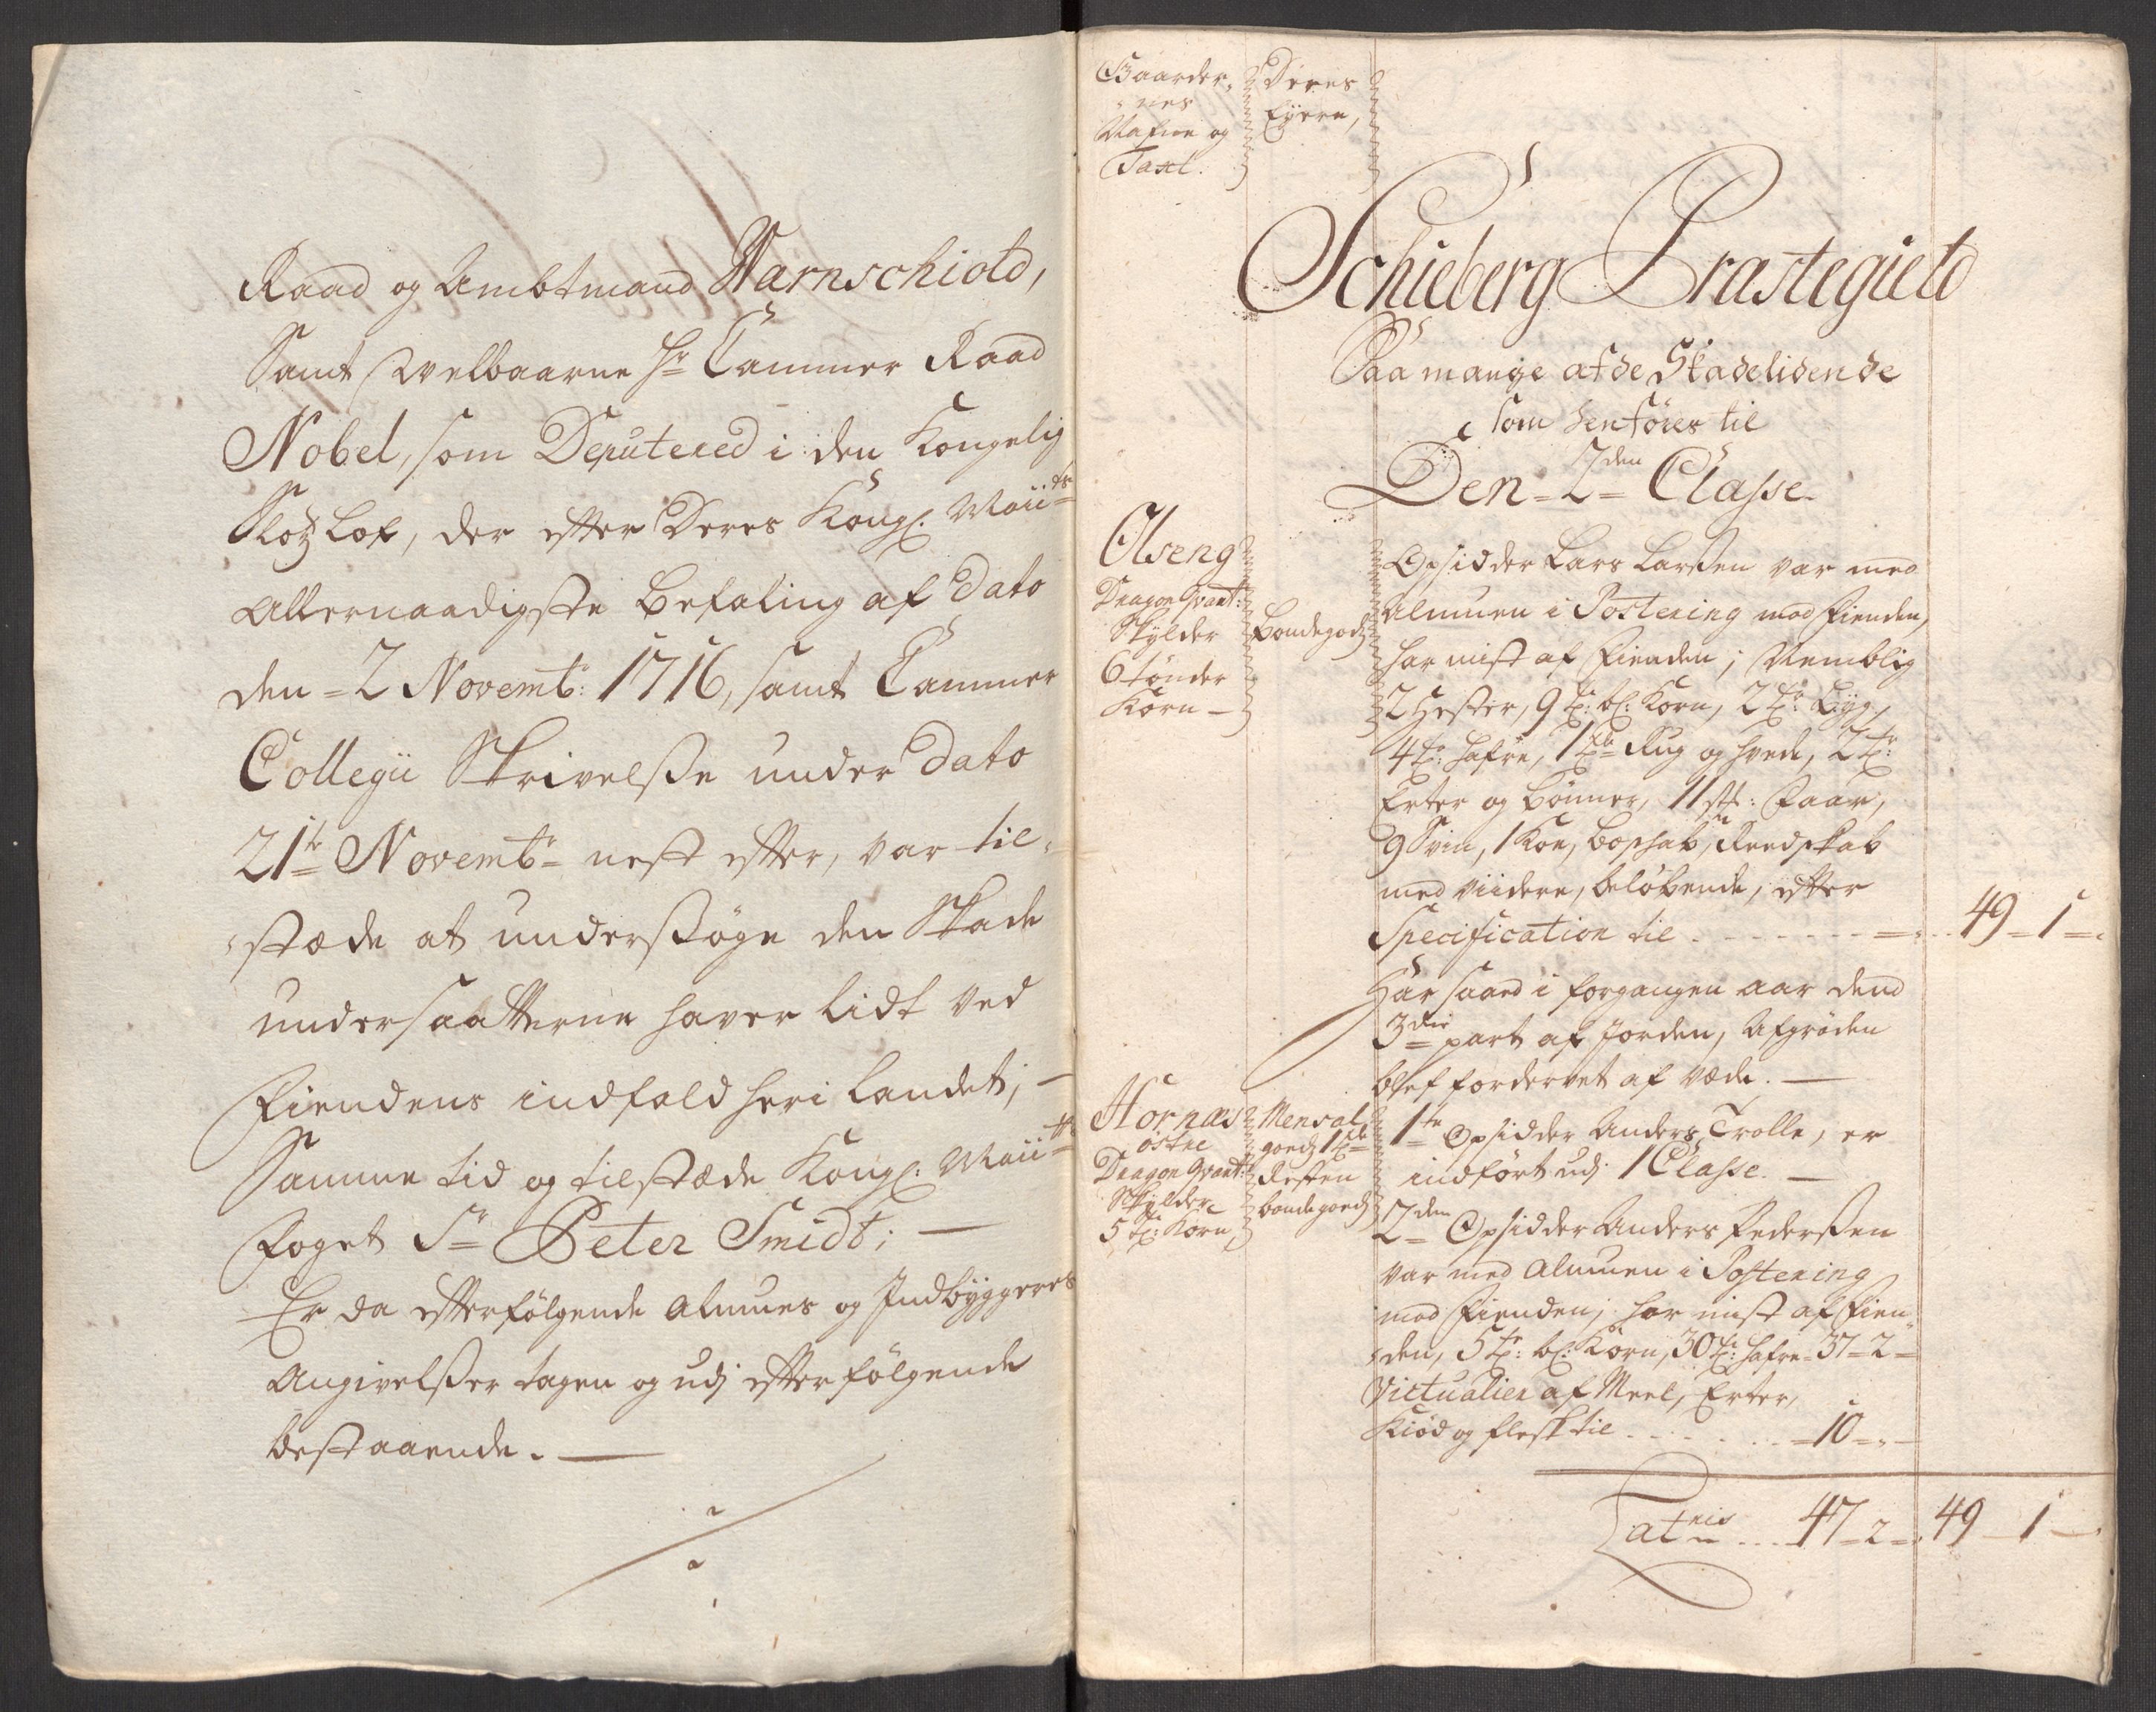 Raad og Ambtmand Warnschiold,
Samt Welbaarne Hr Cammer Raad
Nobel, som Deputered i den Kongelig
Slotz Lof, der efter Deres Kongl. Maiits
Allernaadigste Befaling af Dato
den 2 Novemb: 1716, samt Cammer
Collegii Skrivelsse under Dato
21te Novembr nest efter, var til-
stæde at undersøge den Skade
undersaatterne haver lidt ved
Fiendens indfald her i Landet; —
Samme tid og tilstæde Kongl: Maiits
Foget Sr Peter Smidt; —
Er da efterfølgende Almues og Indbyggeres
Angivelsser tagen og udj efterfølgende
bestaaende. —
Gaarder-
nes
Nafne og
Taxt.
Deres
Eÿere,
Schieberg Præstegield
Saa mange af de Skadelidende
som henføres til
Den 2den Classe
Olseng
Dragon Qvart:
Skylder
6 tønder
Korn —
Bondegodz
Opsidder Lars Larssen var med
Almuen i Postering mod Fienden,
har mist af Fienden; Nemblig
2 Hester, 9 tr: bl: Korn, 2 tr: Byg,
4 tr: Hafre, 1 td Rug og Hvede, 2 tr:
Erter og Bønner, 11 stk: Faar,
9 Svin, 1 Koe, Boeskab, Reedskab
med viidere, beløbende, efter
Specification til . . . . . 49 - 1 -
Har saaed i forgangen aar dend
3die part af Jorden, Afgrøden
blef fordervet af Væde. —
Hornæs
østre
Dragon Qvart:
Skylder
5 tr: Korn
Mensal
goedz 1 td
Resten
bondegoedz
1te Opsidder Anders Trolle, er
indført udj 1 Classe. —
2den Opsidder Anders Pederssen
var med Almuen i Postering
mod Fienden; har mist af Fien-
den, 5 tr: bl: Korn, 30 tr: Hafre - 37 - 2 -
Victualier af Meel, Erter,
Kiød og flesk til . . . . . 10 - -
Latris . . . 47 - 2 - 49 - 1 -